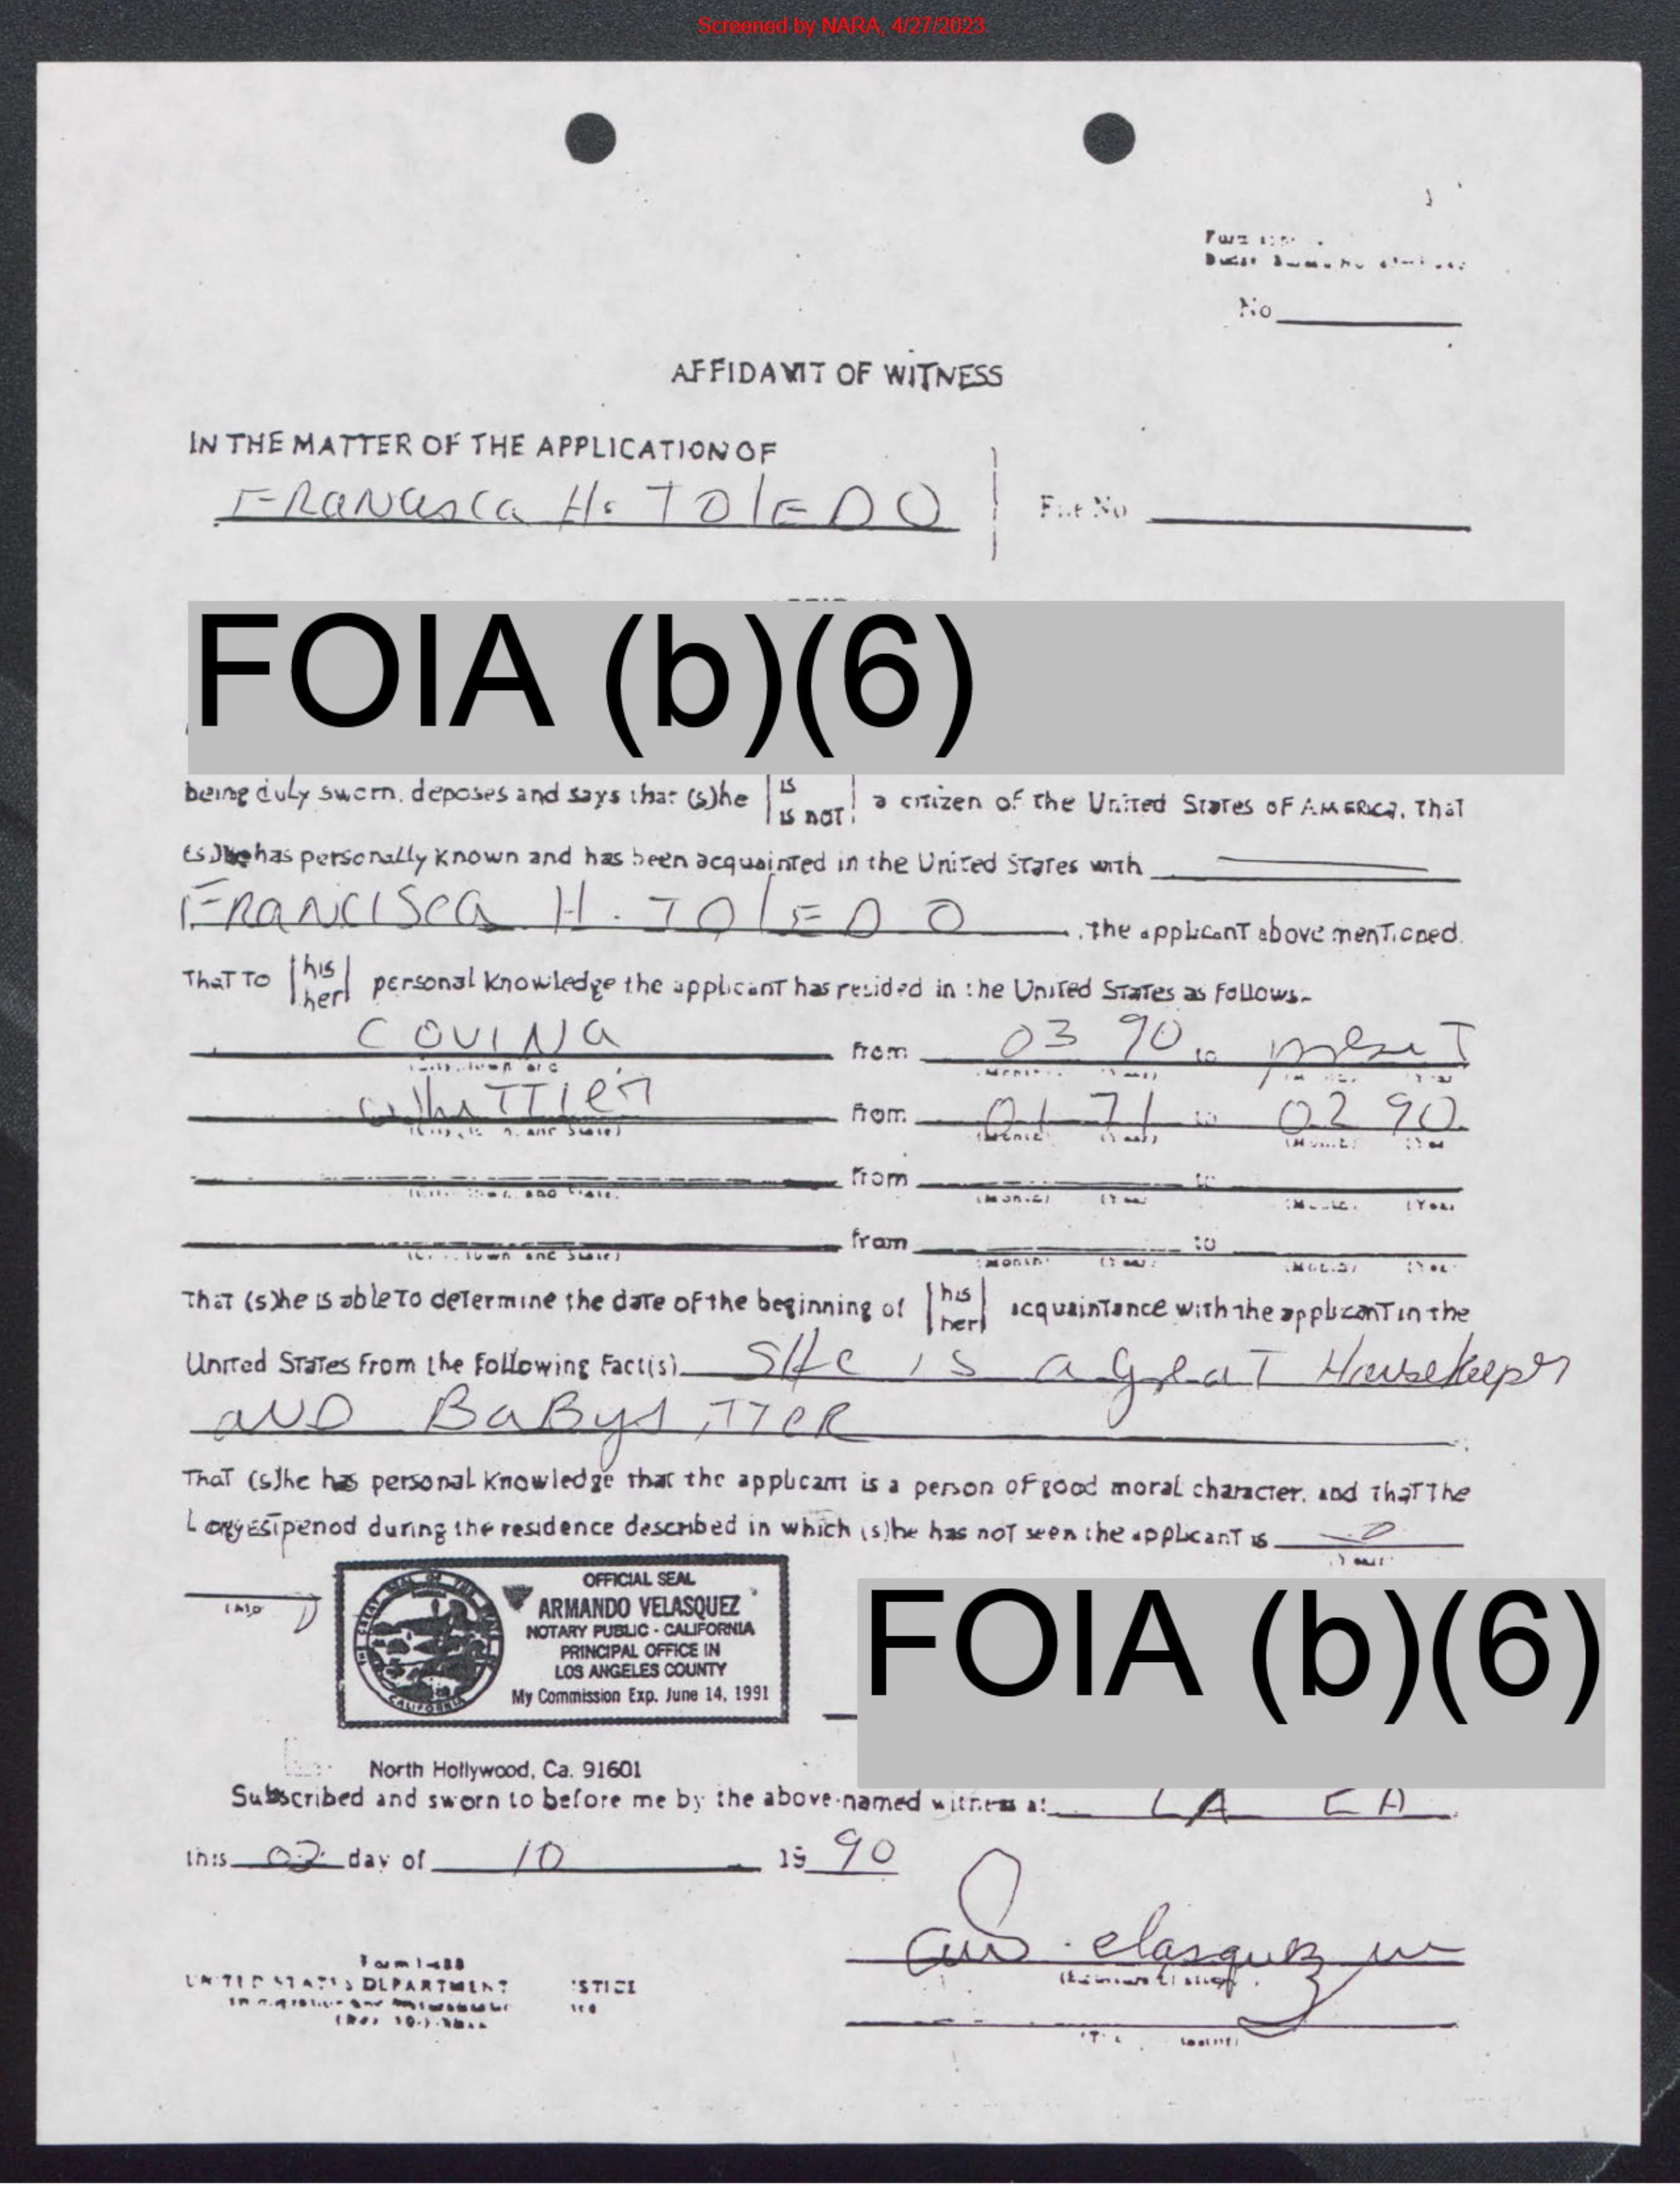 Screened by NARA, 4/27/2023
No
AFFIDAVIT OF WITNESS
IN THE MATTER OF THE APPLICATION OF
FRANCISCA H. TOLEDO
File No
FOIA (b)(6)
being duly sworn, deposes and says that (s)he is is not a citizen of the United States of America, that
(s)he has personally known and has been acquainted in the United States with
FRANCISCA H. TOLEDO , the applicant above mentioned.
That to his her personal knowledge the applicant has resided in the United States as follows.
COVINA from 03 90 to present
Whittier from 01 71 to 02 90
(City, Town and State) (Month) (Year) (Month) (Year)
from to
(City, Town and State) (Month) (Year) (Month) (Year)
from to
(City, Town and State) (Month) (Year) (Month) (Year)
That (s)he is able to determine the date of the beginning of his her acquaintance with the applicant in the
United States from the following fact(s). SHe is a great Housekeeper
AND BaBysiTTER
That (s)he has personal knowledge that the applicant is a person of good moral character, and that the
Longest period during the residence described in which (s)he has not seen the applicant is 0
OFFICIAL SEAL
ARMANDO VELASQUEZ
NOTARY PUBLIC - CALIFORNIA
PRINCIPAL OFFICE IN
LOS ANGELES COUNTY
My Commission Exp. June 14, 1991
FOIA (b)(6)
North Hollywood, Ca. 91601
Subscribed and sworn to before me by the above-named witness at LA CA
this 02 day of 10 19 90
UNITED STATES DEPARTMENT STICE